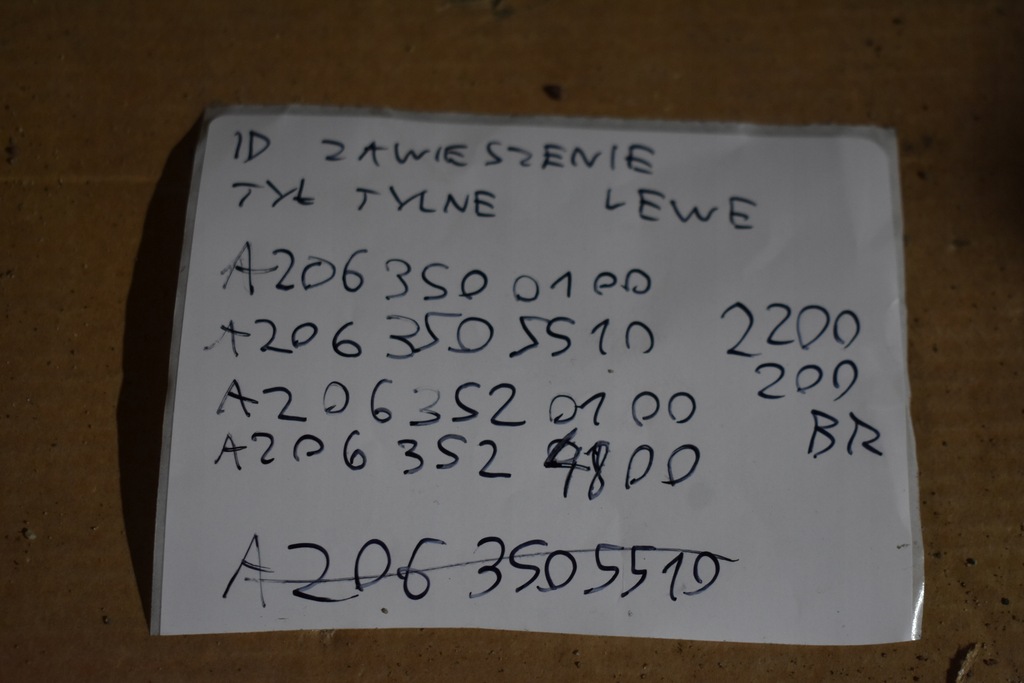 ID ZAWIESZENIE
TYŁ TYLNE LEWE
A206 350 0100
A206 350 5510 2200
200
A206 352 0100
BR
A206 352 4800
A206 350 5510